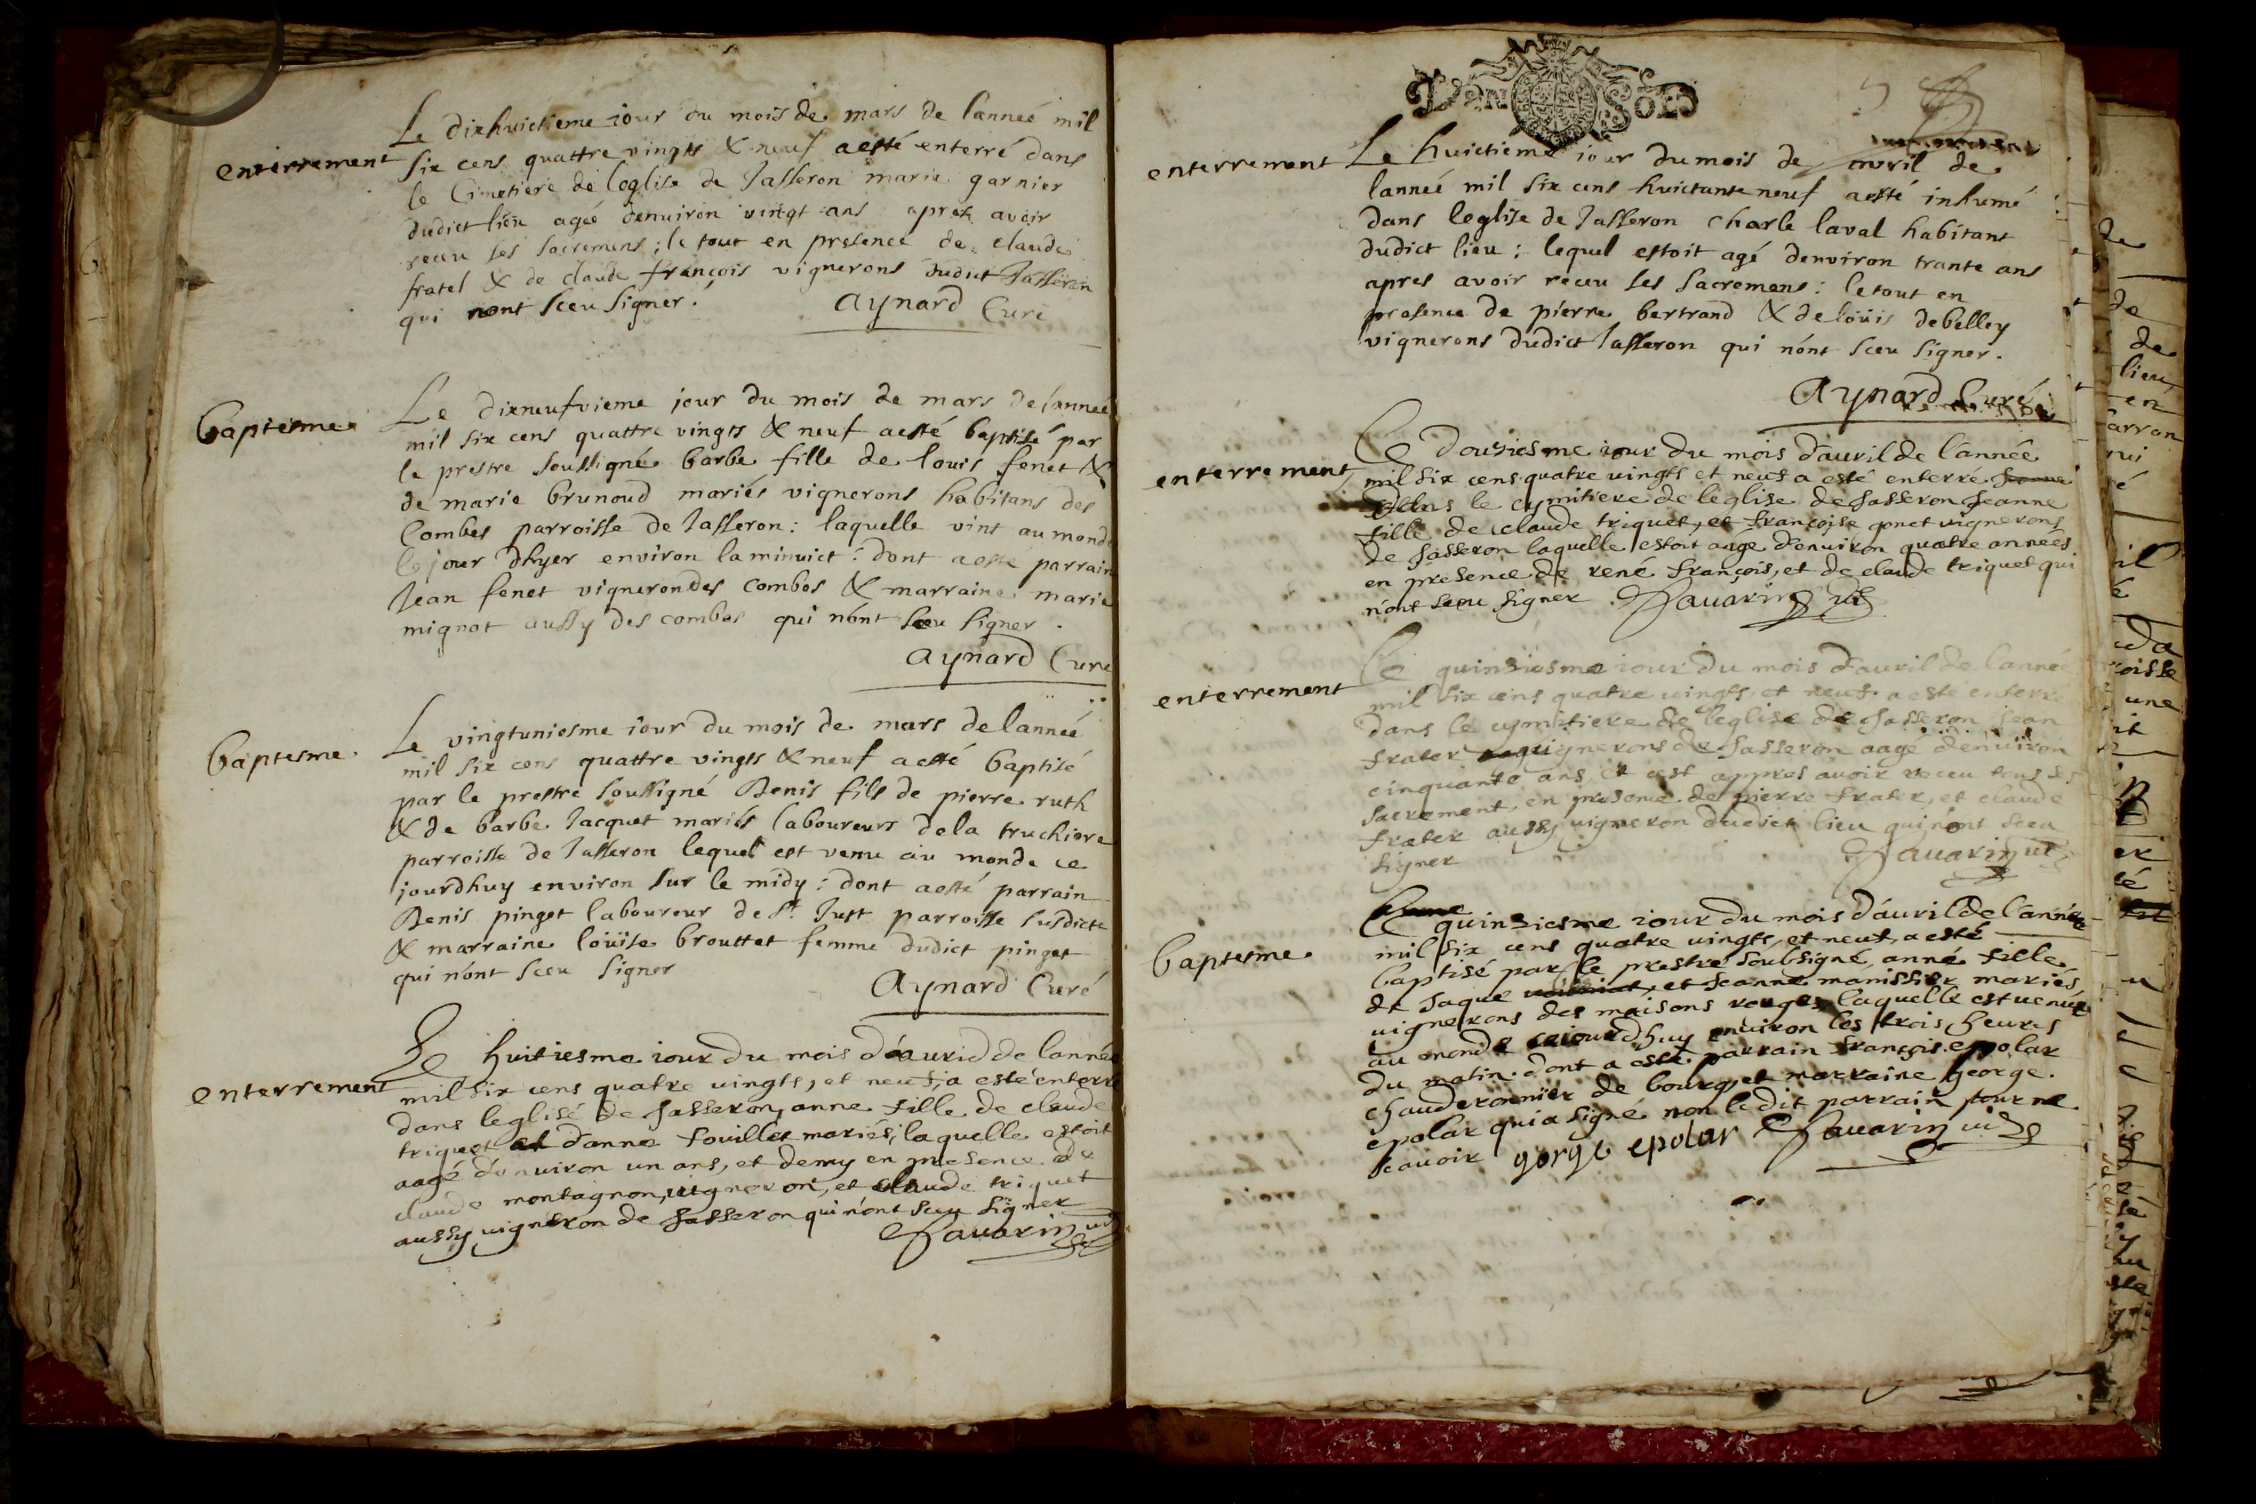 enterrement
Le dixhuictieme iour du mois de mars de lanneé mil
six cens quattre vingts & neuf a esté enterré dans
le Cimetiere de leglise de Jasseron marie garnier
dudict lieu ageé denuiron vingt ans apres avoir
receu ses sacremens ; le tout en presence de claude
fratel & de claude françois vignerons dudict Jasseron
qui nont sceu signer.
Aynard Curé
baptesme
Le dixneufvieme jour du mois de mars de lanneé
mil six cens quattre vingts & neuf a esté baptisé par
le prestre soussigné barbe fille de louis fenet &
de marie brunoud mariés vignerons habitans des
Combes parroisse de Jasseron : laquelle vint au monde
le jour dhyer environ la minuict : dont a esté parrain
Jean fenet vigneron des combes & marraine marie
mignot aussy des combes qui nónt sceu signer .
Aynard Curé
baptesme
Le vingtuniesme iour du mois de mars de lanneé
mil six cens quattre vingts & neuf a esté baptisé
par le prestre soussigné Denis fils de pierre ruth
& de barbe Jacquet mariés laboureurs de la truchiere
parroisse de Jasseron lequel est venu au monde ce
jourdhuy environ sur le midy : dont a esté parrain
Denis pinget laboureur de St Just parroisse susdicte
& marraine loüise brouttet femme dudict pinget
qui nónt sceu signer
Aynard Curé
enterrement
Le huitiesme iour du mois d'auril de lanneé
mil six cens quatre vingts, et neuf, a esté enterré
dans leglisé de Jasseron, anne fille de claude
triquet et danne fouillet mariés, laquelle estoit
aagé d'enuiron un ans, et demy en presence de
claude montagnon, uigneront, et claude triquet
aussy uigneron de Jasseron qui nónt sceu signer
Sauarin vic
GEN DIJON
enterrement
Le huictieme iour du mois de avril de
lanneé mil six cens huictante neuf a esté inhumé
dans leglise de Jasseron Charle laval habitant
dudict lieu : lequel estoit agé denviron trante ans
apres avoir receu ses sacremens : le tout en
presence de pierre bertrand & de loüis debelley
vignerons dudict Jasseron qui nónt sceu signer.
Aynard Curé
enterrement
Le douziesme iour du mois d'auril de l'anneé
mil six cens quatre vingts et neuf a esté enterré
dans le cymitiere de leglise de Jasseron Jeanne
fille de claude triquet, et françoise gonet uignerons
de Jasseron laquelle estoit aage d'enuiron quatre anneés
en presence de rené françois, et de claude triquet qui
n'ont sceu signer Sauarin vic
enterrement
Le quinziesme iour du mois d'auril de lanneé
mil six cens quatre uingts, et neuf a esté enterré
dans le cymitiere de leglise de Jasseron Jean
frater uignerons de Jasseron aagé d'enuiron
cinquante ans, et est appres auoir receu tous ses
sacrement, en presence de pierre frater, et claude
frater aussy uigneron dudict lieu qui nont sceu
signer
Sauarin vic
baptesme
Le quinziesme iour du mois d'auril de l'anneé
mil six cens quatre uingts, et neuf, a esté
baptisé par le prestre soubsigné, anne fille
de Jaque, et Jeanne manissier mariés
uignerons des maisons rouges, laquelle est uenuë
au monde ceiourdhuy enuiron les trois heures
du matin. dont a esté parrain françois epolar
chauderonnier de bourg, et marraine george
epolar qui a signé non ledit parrain pour ne
scauoir gorge epolar Sauarin vic